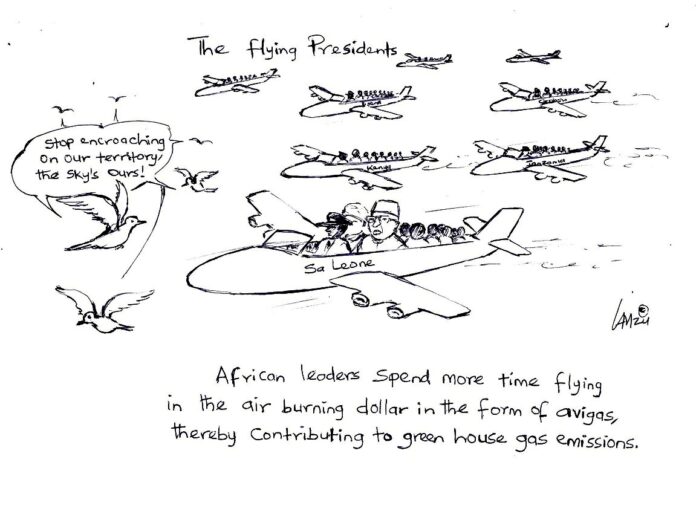 The Flying Presidents
Stop encroaching
on our territory,
the sky's ours!
Kenya
Tanzania
Sa Leone
African leaders spend more time flying
in the air burning dollar in the form of avigas,
thereby contributing to green house gas emissions.